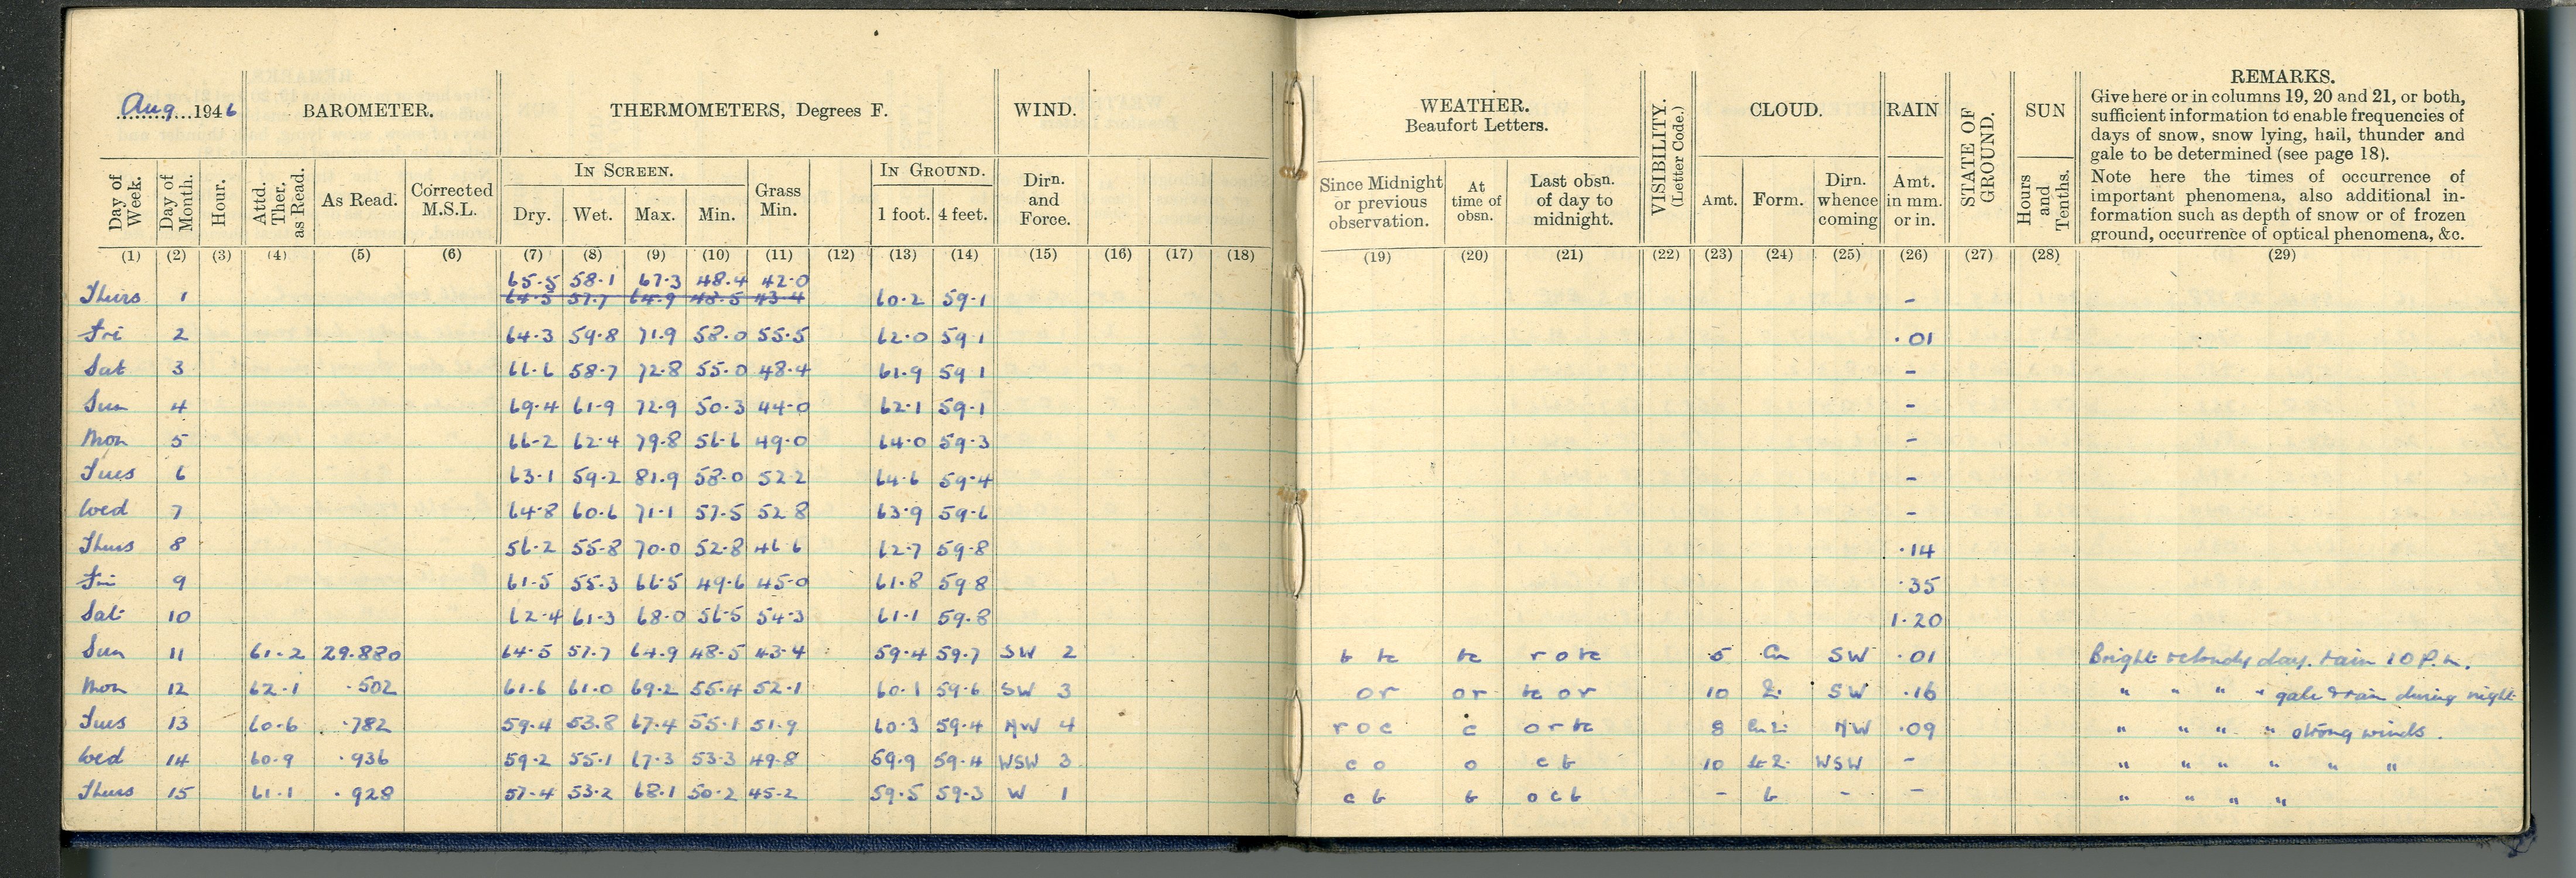 Aug 1946 BAROMETER. THERMOMETERS, Degrees F. WIND. WEATHER. Beaufort Letters. VISIBILITY. (Letter Code.) CLOUD. RAIN STATE OF GROUND. SUN REMARKS.
Give here or in columns 19, 20 and 21, or both,
sufficient information to enable frequencies of
days of snow, snow lying, hail, thunder and
gale to be determined (see page 18).
Note here the times of occurrence of
important phenomena, also additional in-
formation such as depth of snow or of frozen
ground, occurrence of optical phenomena, &c.
IN SCREEN. IN GROUND.
Day of Week. Day of Month. Hour. Attd. Ther. as Read. As Read. Corrected M.S.L. Dry. Wet. Max. Min. Grass Min. 1 foot. 4 feet. Dirn. and Force. Since Midnight or previous observation. At time of obsn. Last obsn. of day to midnight. Amt. Form. Dirn. whence coming Amt. in mm. or in. Hours and Tenths.
(1) (2) (3) (4) (5) (6) (7) (8) (9) (10) (11) (12) (13) (14) (15) (16) (17) (18) (19) (20) (21) (22) (23) (24) (25) (26) (27) (28) (29)
65.5 58.1 67.3 48.4 42.0
Thurs 1 64.5 57.7 64.9 48.5 43.4 60.2 59.1 -
Fri 2 64.3 59.8 71.9 58.0 55.5 62.0 59.1 .01
Sat 3 61.6 58.7 72.8 55.0 48.4 61.9 59.1 -
Sun 4 69.4 61.9 72.9 50.3 44.0 62.1 59.1 -
Mon 5 66.2 62.4 79.8 56.6 49.0 64.0 59.3 -
Tues 6 63.1 59.2 81.9 58.0 52.2 64.6 59.4 -
Wed 7 64.8 60.6 71.1 57.5 52.8 63.9 59.6 -
Thurs 8 56.2 55.8 70.0 52.8 46.6 62.7 59.8 .14
Fri 9 61.5 55.3 66.5 49.6 45.0 61.8 59.8 .35
Sat 10 62.4 61.3 68.0 56.5 54.3 61.1 59.8 1.20
Sun 11 61.2 29.880 64.5 57.7 64.9 48.5 43.4 59.4 59.7 SW 2 b bc bc r o bc 5 Cu SW .01 Bright & cloudy day. rain 10 P.m.
Mon 12 62.1 .502 61.6 61.0 69.2 55.4 52.1 60.1 59.6 SW 3 or or bc or 10 SW .16 " " " " gale & rain during night
Tues 13 60.6 .782 59.4 53.8 67.4 55.1 51.9 60.3 59.4 NW 4 r o c c o r bc 8 NW .09 " " " " strong winds.
Wed 14 60.9 .936 59.2 55.1 67.3 53.3 49.8 59.9 59.4 WSW 3 c o o c b 10 WSW - " " " " " "
Thurs 15 61.1 .928 57.4 53.2 68.1 50.2 45.2 59.5 59.3 W 1 c b b o c b - b - - " " " "